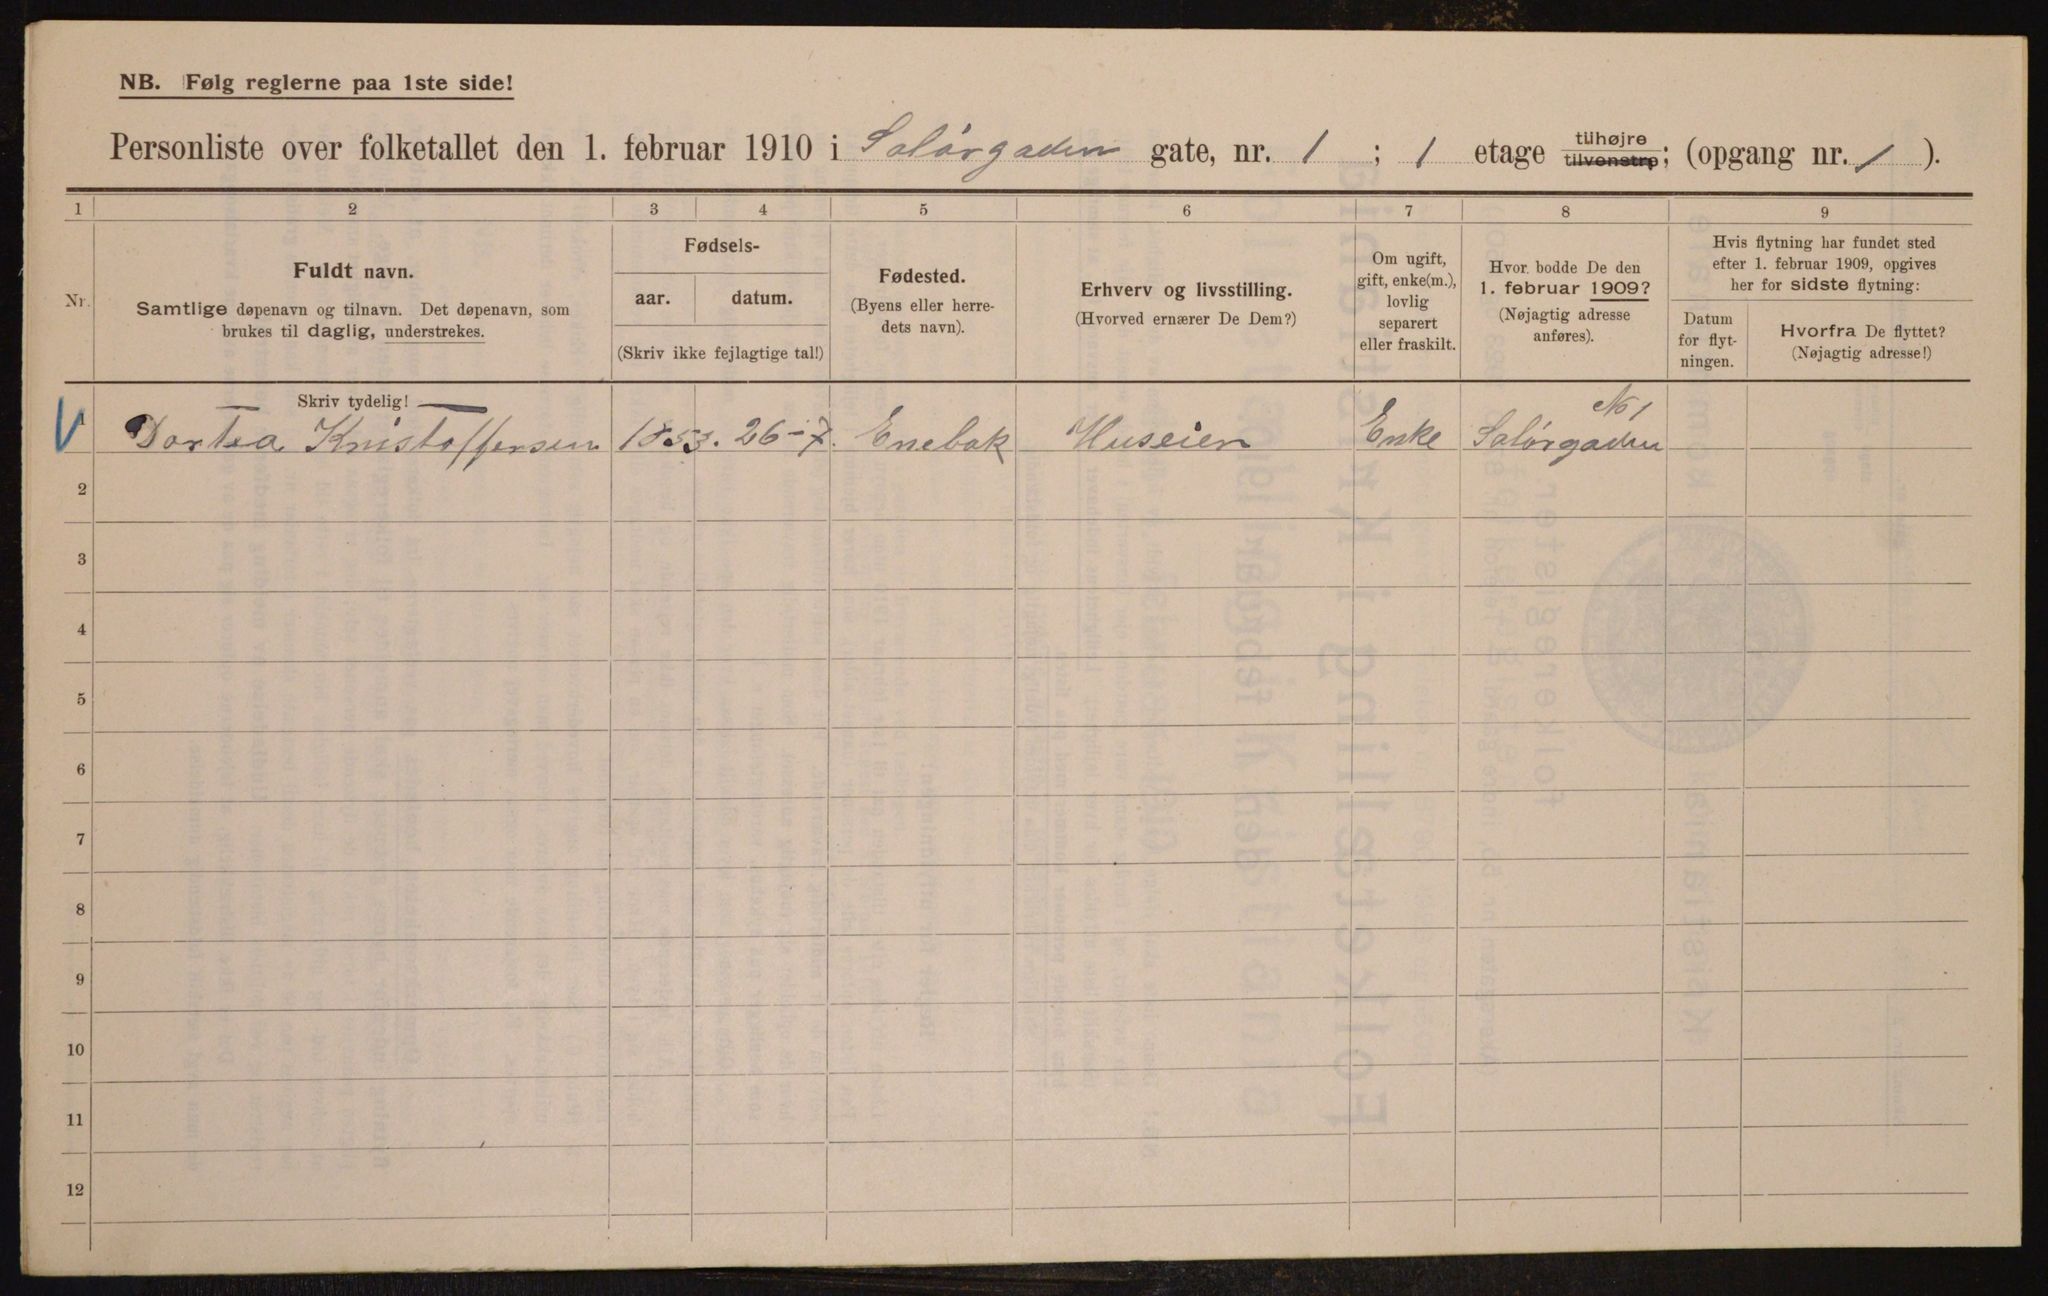 NB. Følg reglerne paa 1ste side!
Personliste over folketallet den 1. februar 1910 i Solørgaden gate, nr. 1 ; 1 etage tilhøjre tilvenstre; (opgang nr. 1 ).
1 2 3 4 5 6 7 8 9
Nr.
Fuldt navn.
Samtlige døpenavn og tilnavn. Det døpenavn, som
brukes til daglig, understrekes.
Fødsels-
aar. datum.
(Skriv ikke fejlagtige tal!)
Fødested.
(Byens eller herre-
dets navn).
Erhverv og livsstilling.
(Hvorved ernærer De Dem?)
Om ugift,
gift, enke(m.),
lovlig
separert
eller fraskilt.
Hvor bodde De den
1. februar 1909?
(Nøjagtig adresse
anføres).
Hvis flytning har fundet sted
efter 1. februar 1909, opgives
her for sidste flytning:
Datum
for flyt-
ningen.
Hvorfra De flyttet?
(Nøjagtig adresse!)
Skriv tydelig!
No 1
1 Dortea Kristoffersen 1853. 26-7. Enebak Huseier Enke Solørgaden
2
3
4
5
6
7
8
9
10
11
12